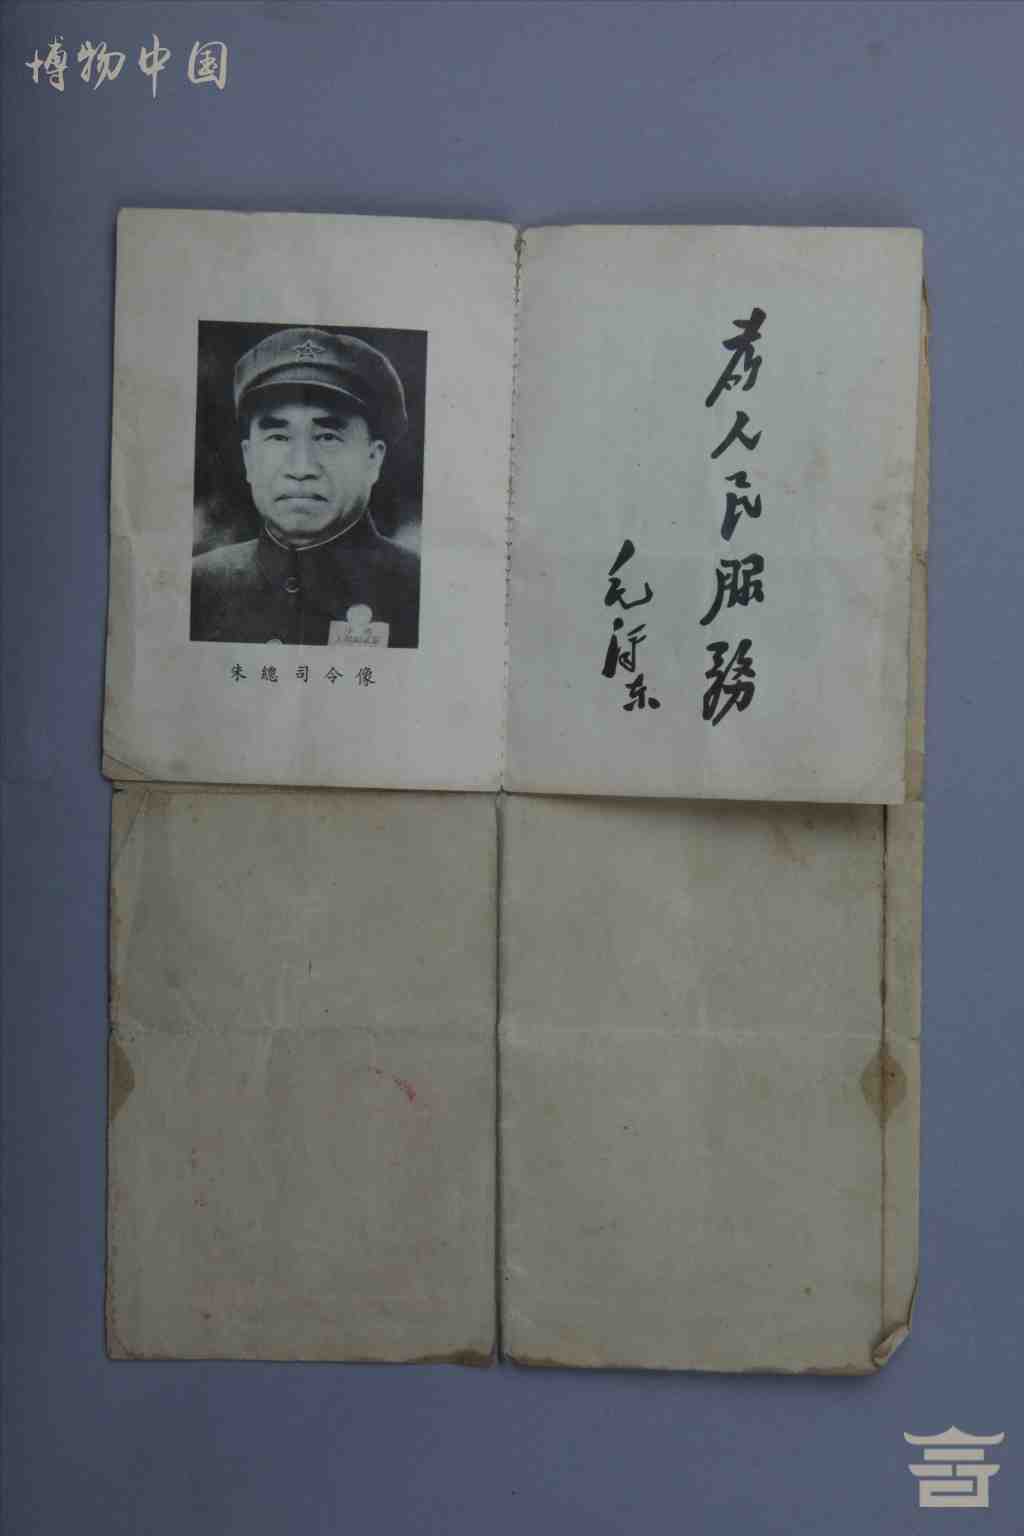 博物中国
为人民服務
毛泽东
朱總司令像